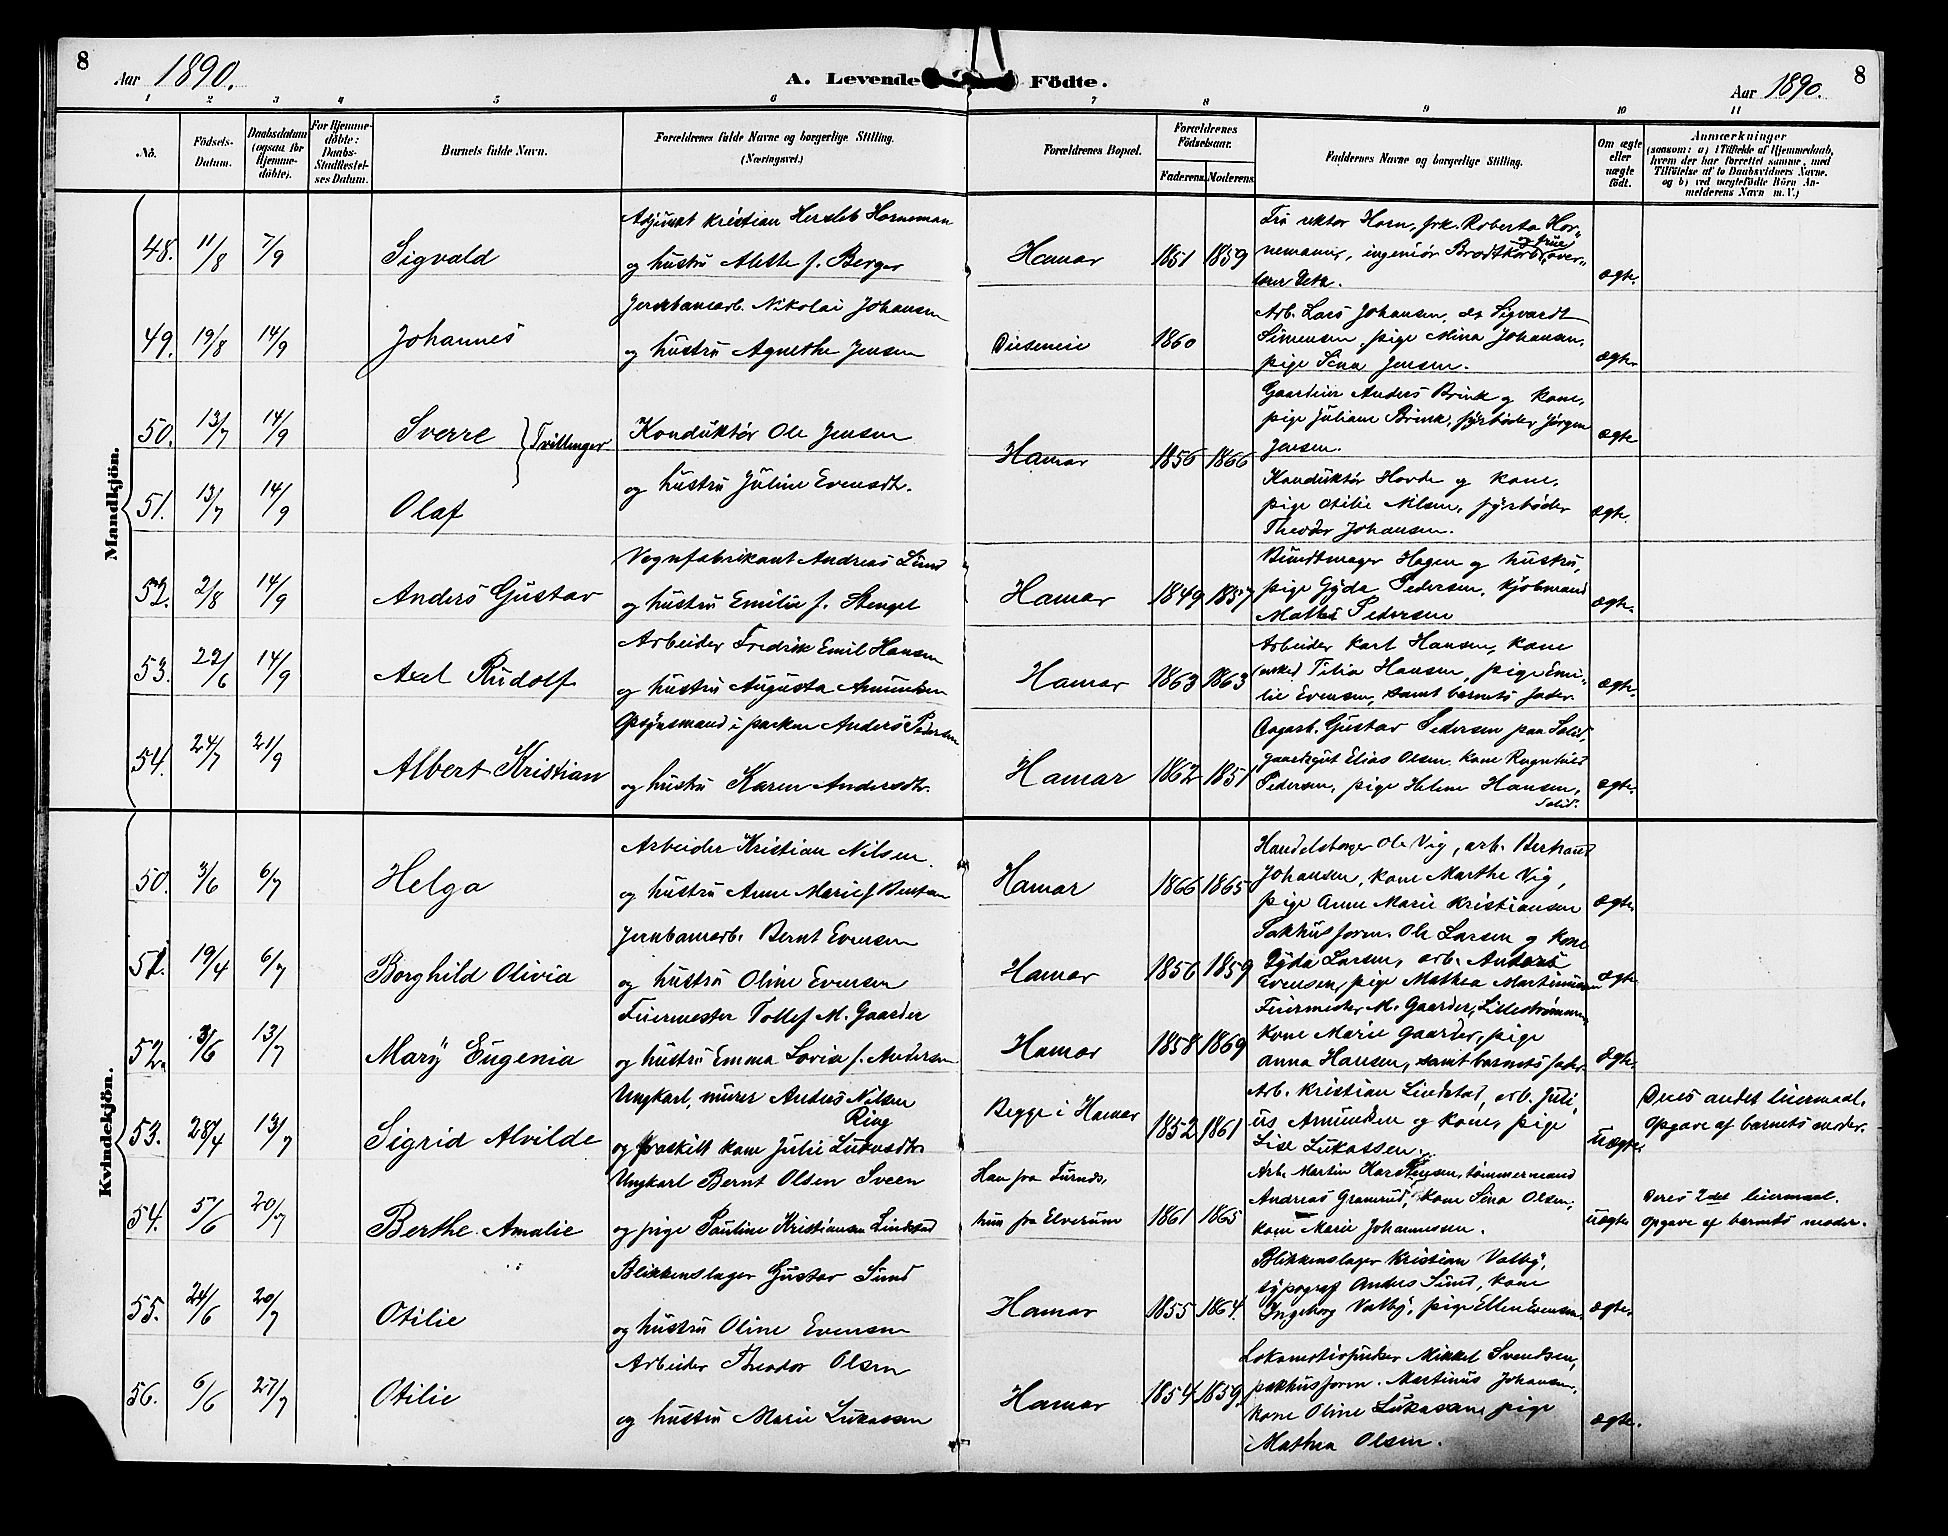 8
Aar 1890.
A. Levende Födte.
Aar 1890.
8
1 2 3 4 5 6 7 8 9 10 11
No.
Födsels-Datum.
Daabsdatum (ogsaa for Hjemmedöbte).
For Hjemmedöbte: Daabs-Stadfæstelses Datum.
Barnets fulde Navn.
Forældrenes fulde Navne og borgerlige Stilling. (Næringsvei.)
Forældrenes Bopæl.
Forældrenes Födselsaar.
Faderens. Moderens.
Faddernes Navne og borgerlige Stilling.
Om ægte eller uægte födt.
Anmærkninger
(saasom: a) i Tilfælde af Hjemmedaab, hvem der har forrettet samme, med Tilföielse af to Daabsvidners Navne. og b) ved uægtefödte Börn Anmelderens Navn m. V.)
Mandkjön.
48. 11/8 7/9 Sigvald
Adjunkt Kristian Hersleb Horneman
og hustru Alette f. Berger
Hamar 1851 1859
Fru rektor Horn, frk. Roberta Hor-
nemann, ingeniør Brodtkorb og frue, over-
lærer
ægte.
49. 19/8 14/9 Johannes
Jernbanearb. Nikolai Johansen
og hustru Agnethe Jensen
Diseneie 1860
Arb. Lars Johansen, do Sigvardt
Simensen, pige Mina Johansen,
pige Sina Jensen.
ægte
50. 13/7 14/9 Sverre } Tvillinger
Konduktør Ole Jensen
Hamar 1856 1866
Gaardeier Anders Brink og kone,
pige Juliane Brink, fyrbøder Jørgen
Jensen.
ægte
51. 13/7 14/9 Olaf
og hustru Juline Evensdt.
Konduktør Hovde og kone,
pige Otilie Nilsen, fyrbøder
Theodor Johansen.
ægte.
52. 2/8 14/9 Anders Gustav
Vognfabrikant Andreas Lund
og hustru Emilie f. Stengel
Hamar 1849 1857
Bundtmager Hagen og hustru,
pige Gyda Pedersen, kjøbmand
Mathis Pedersen
ægte.
53. 22/6 14/9 Axel Rudolf
Arbeider Fredrik Emil Hansen
og hustru Augusta Amundsen
Hamar 1863 1863
Arbeider Karl Hansen, kone
(enke) Tilia Hansen, pige Emi-
lie Evensen, samt barnets fader
ægte.
54. 24/7 21/9 Albert Kristian
Opsynsmand i parken Anders Pedersen
og hustru Karen Andersdtr.
Hamar 1862 1851
Gustav Pedersen paa Solid,
gaardsgut Elias Olsen, kone Ragnhild
Pedersen, pige Helene Hansen,
Solid.
ægte.
Kvindekjön.
50. 3/6 6/7 Helga
Arbeider Kristian Nilsen.
og hustru Anne Marie f Bentsen
Hamar 1866 1865
Handelsborger Ole Vig, arb. Bertrand
Johansen, kone Marthe Vig,
pige Anne Marie Kristiansen
ægte.
51. 19/4 6/7 Borghild Olivia
Jernbanearb. Bernt Evensen
og hustru Oline Evensen
Hamar 1856 1859
Pakhusform. Ole Larsen og kone
Gyda Larsen, arb. Anders
Evensen, pige Mathea Martinusen
ægte
52. 3/6 13/7 Mary Eugenia
Feiermester Tollef M. Gaarder
og hustru Emma Lovia f. Andersen
Hamar 1858 1869
Feiermester M. Gaarder, Lillestrømmen,
kone Marie Gaarder, pige
Anna Hansen, samt barnets fader
ægte.
53. 28/4 13/7 Sigrid Alvilde
Ungkarl, murer Anders Nilsen
Ring
og fraskilt kone Julie Lukasdtr.
Begge i Hamar 1852 1861
Arb. Kristian Lindstad, arb. Juli-
us Amundsen og kone, pige
Lise Lukassen.
uægte.
Deres andet leiermaal.
Opgave af barnets moder.
54. 5/6 20/7 Berthe Amalie
Ungkarl Bernt Olsen Sveen
og pige Pauline Kristiansen Lindstad
Han fra Furnes,
hun fra Elverum 1861 1865
Arb. Martin Karstensen, tømmermand
Andreas Granrud, kone Sina Olsen,
kone Marie Johannessen.
uægte
Deres 2det leiermaal.
Opgave af barnets moder.
55. 24/6 20/7 Otilie
Blikkenslager Gustav Lund
og hustru Oline Evensen
Hamar 1855 1864.
Blikkenslager Kristian Valby,
typograf Anders Lund, kone
Ingeborg Valby, pige Ellen Evensen.
ægte.
56. 6/6 27/7 Otilie
Arbeider Theodor Olsen
og hustru Marie Lukassen
Hamar 1854 1859.
Lokomotivpudser Mikkel Svendsen,
pakhusform. Martinus Johansen,
kone Oline Lukassen, pige
Mathea Olsen.
ægte.